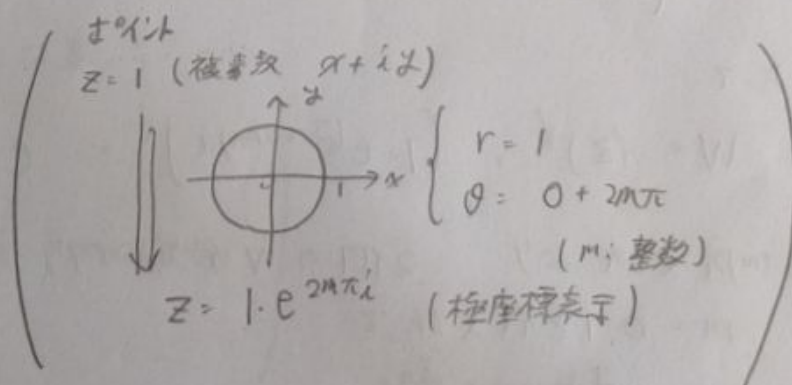 ポイント
z = 1 (複素数 x + iy)
y
x
0
1
r = 1
θ = 0 + 2mπ
(m; 整数)
z = 1・e^{2mπi} (極座標表示)